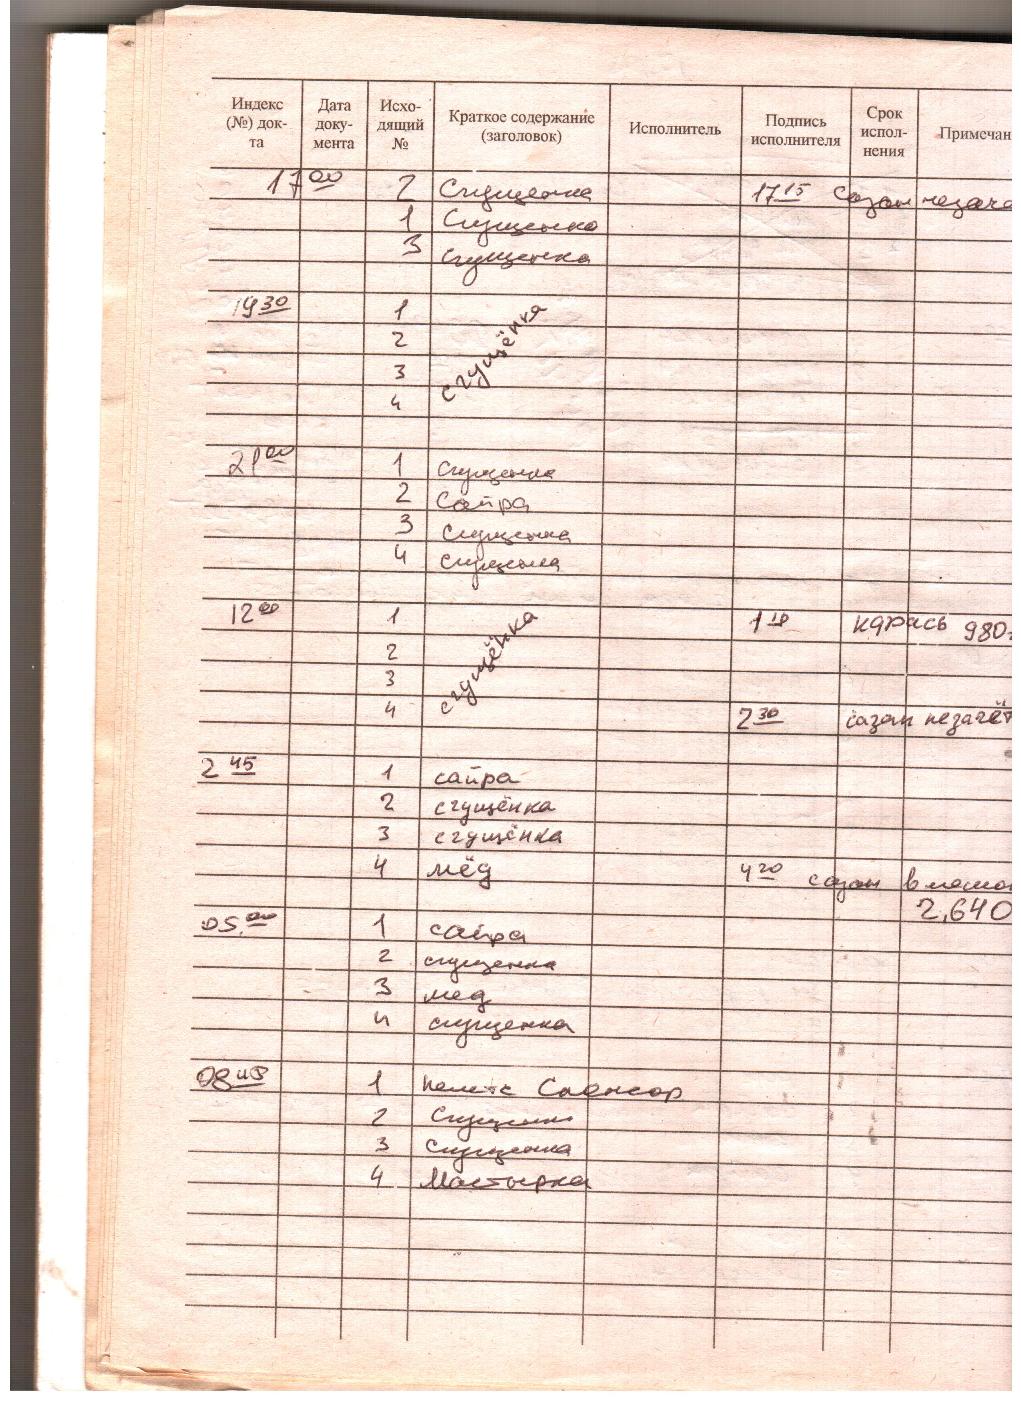 Индекс (№) док-та Дата доку-мента Исхо-дящий № Краткое содержание (заголовок) Исполнитель Подпись исполнителя Срок испол-нения Примечан
17 00 2 Сгущенка 17 15 Сазан незаче
1 Сгущенка
3 Сгущенка
19 30 1 сгущёнка
2
3
4
21 00 1 Сгущенка
2 Сайра
3 Сгущенка
4 Сгущенка
12 00 1 сгущёнка 1 10 карась 980
2
3
4 2 30 сазан незачёт
2 45 1 сайра
2 сгущёнка
3 сгущёнка
4 мёд 4 20 сазан
2,640
05.00 1 сайра
2 сгущенка
3 мед
4 сгущенка
08 45 1 Спонсор
2 Сгущенка
3 Сгущенка
4 Мастырка